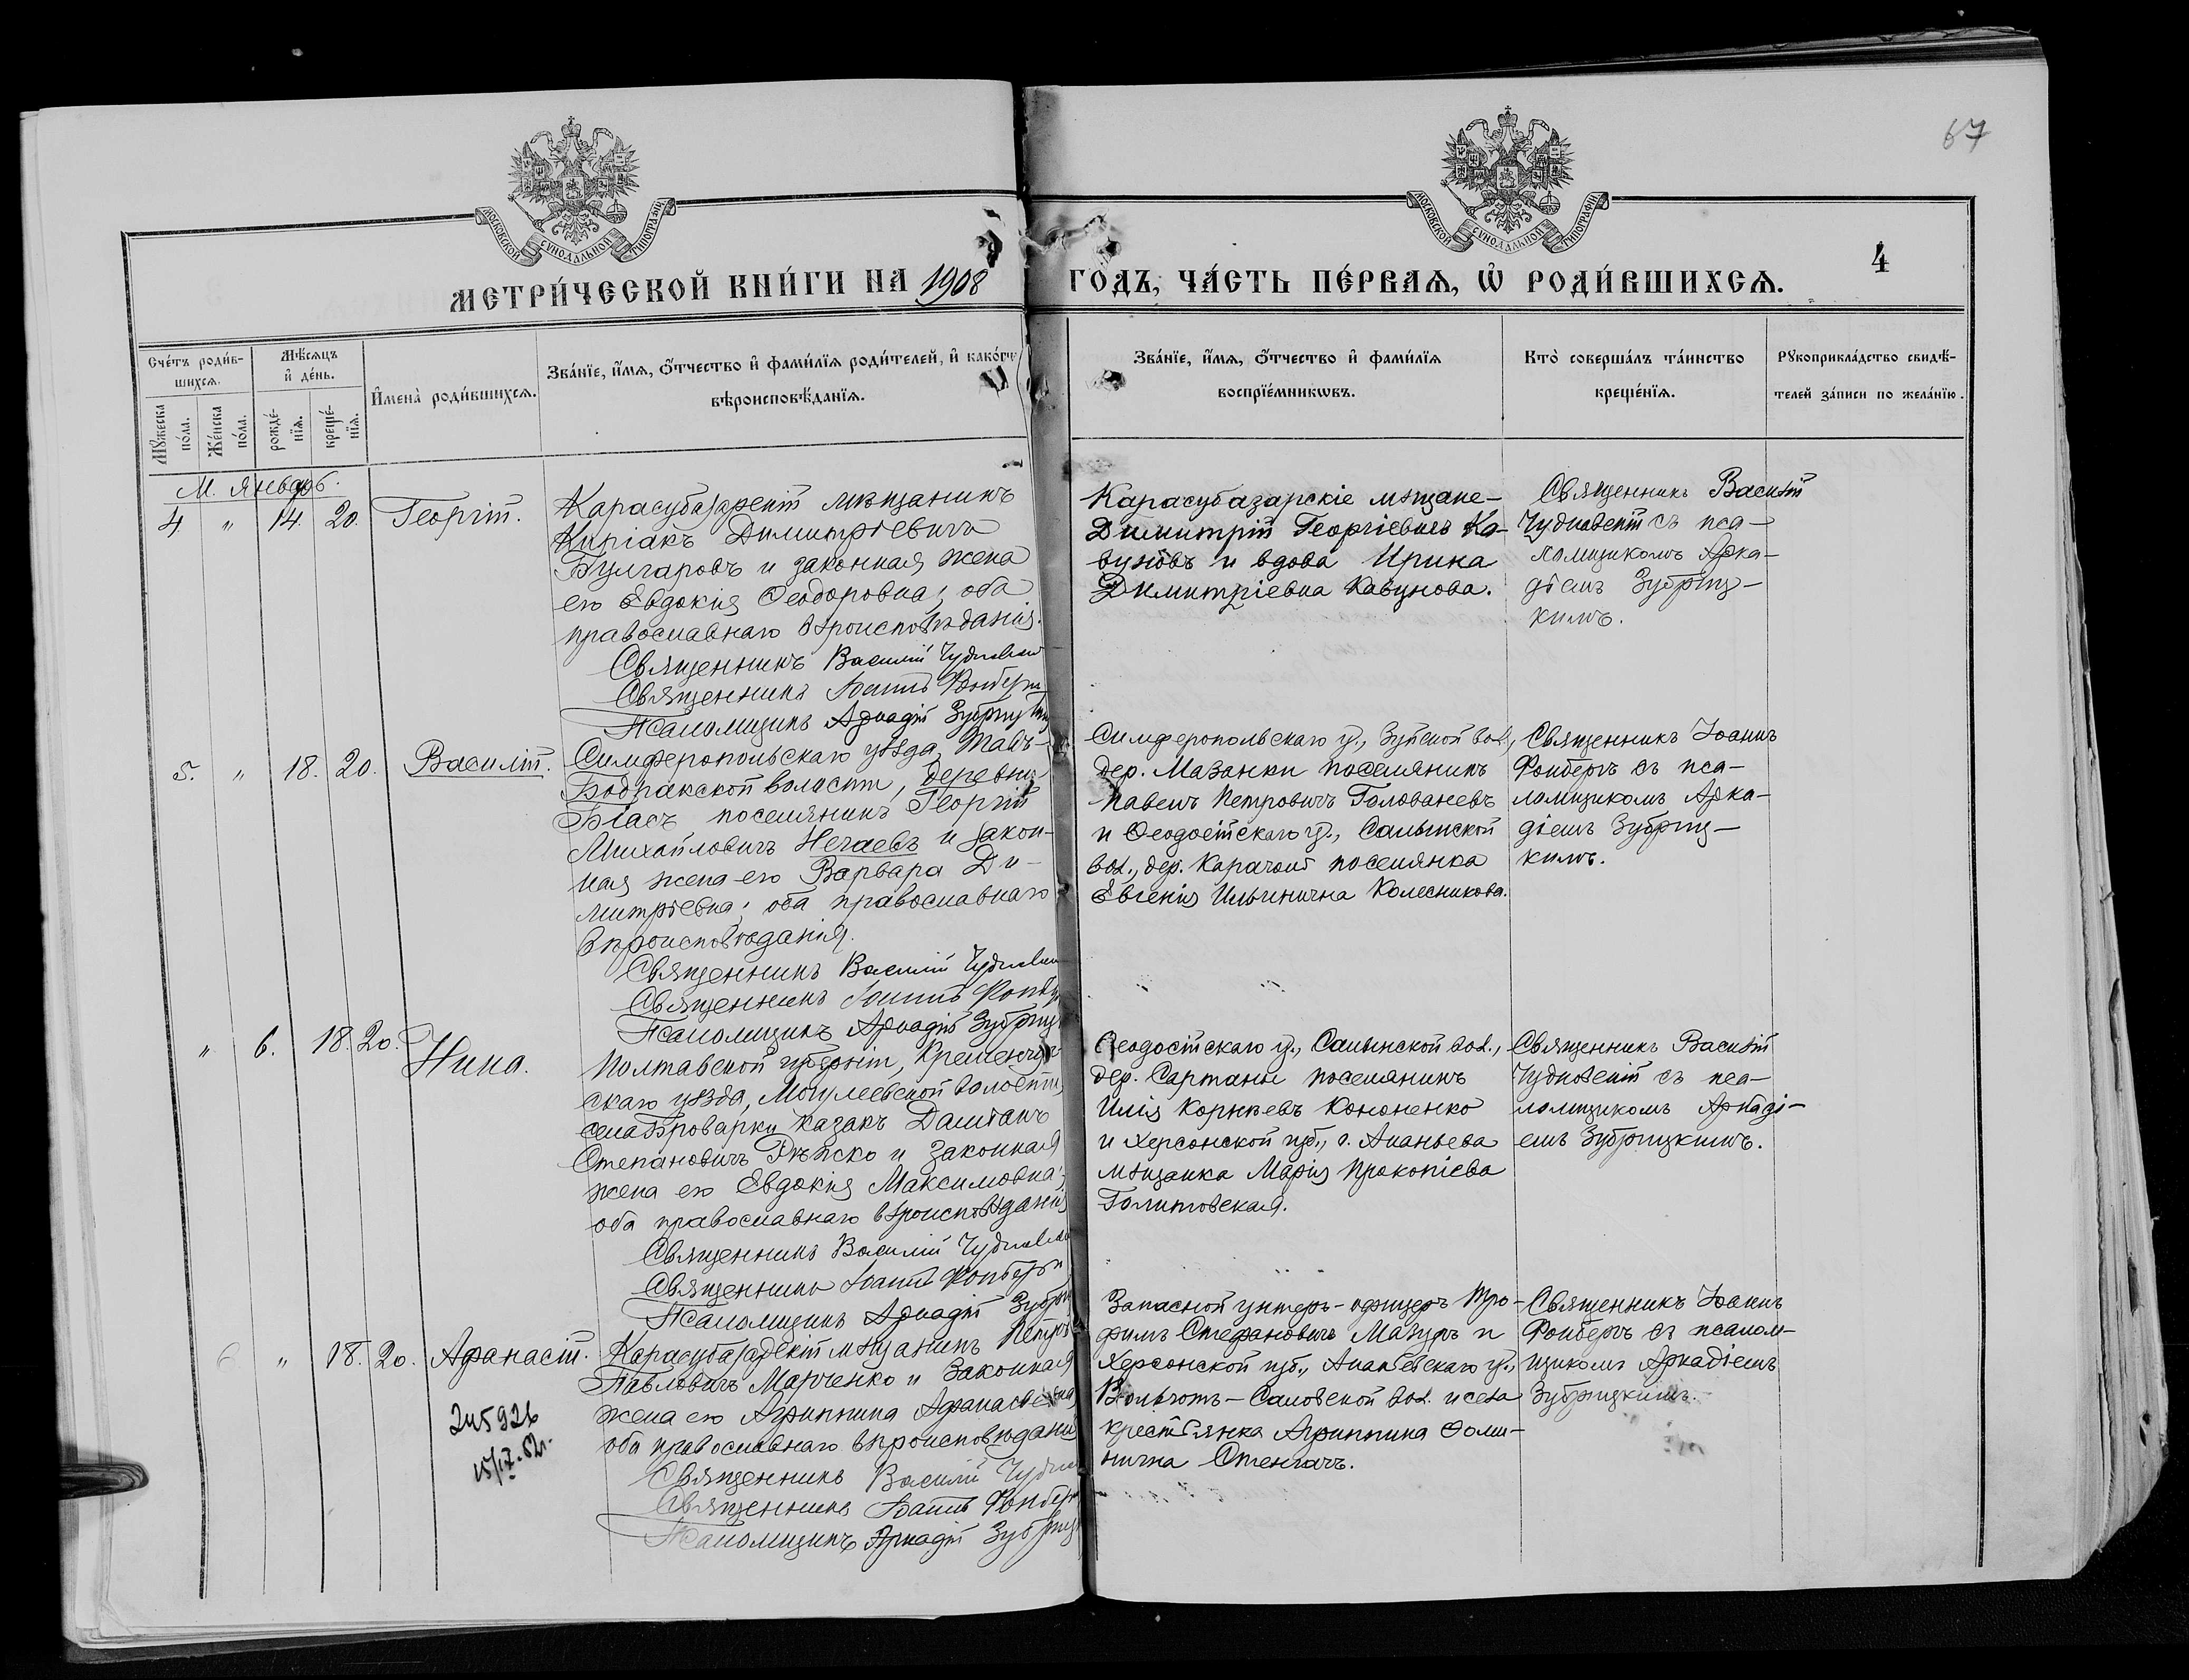 67
МОСКОВСКОЙ СѴНОДАЛЬНОЙ ТИПОГРАФІИ
МОСКОВСКОЙ СѴНОДАЛЬНОЙ ТИПОГРАФІИ
4
МЕТРИ́ЧЕСКОЙ КНИ́ГИ НА 1908 ГОДЪ, ЧА́СТЬ ПЕ́РВАѦ, Ѡ҆ РОДИ́ВШИХСѦ.
Сче́тъ роди́в-
шихсѧ.
Мꙋ́жеска
по́ла.
Же́нска
по́ла.
Мѣ́сѧцъ
и҆ де́нь.
рожде́-
нїѧ.
креще́-
нїѧ.
И҆мена̀ роди́вшихсѧ.
Зва́нїе, и҆́мѧ, ѻ҆́тчество и҆ фами́лїѧ роди́телей, и҆ како́гѡ
вѣроисповѣ́данїѧ.
Зва́нїе, и҆́мѧ, ѻ҆́тчество и҆ фами́лїѧ
воспрїе́мникѡвъ.
Кто̀ соверша́лъ та́инство
креще́нїѧ.
Рꙋкоприкла́дство свидѣ́-
телей за́писи по жела́нїю.
М. Январь.
4 " 14. 20. Георгій.
Карасубазарскій мѣщанинъ
Киріакъ Димитріевичъ
Булгаровъ и законная жена
его Евдокія Ѳеодоровна; оба
православнаго вѣроисповѣданія.
Священникъ Василій
Священникъ Іоаннъ
Псаломщикъ Аркадій
Карасубазарскіе мѣщане-
Димитрій Георгіевичъ Ка-
вуновъ и вдова Ирина
Димитріевна Кавунова.
Священникъ Василій
Чудновскій съ пса-
ломщикомъ Арка-
діемъ Зубриц-
кимъ.
5. " 18. 20. Василій.
Симферопольскаго уѣзда, Табъ-
Бодракской волости, деревни
Біасъ поселянинъ Георгій
Михайловичъ Нечаевъ и закон-
ная жена его Варвара Ди-
митріевна; оба православнаго
вѣроисповѣданія.
Священникъ Василій
Священникъ Іоаннъ
Псаломщикъ Аркадій
Симферопольскаго у., Зуйской вол.,
дер. Мазанки поселянинъ
Павелъ Петровичъ Голованевъ
и Ѳеодосійскаго у., Салынской
вол., дер. поселянка
Евгенія Ильинична Колесникова.
Священникъ Іоаннъ
Фонберъ съ пса-
ломщикомъ Арка-
діемъ Зубриц-
кимъ.
" 6. 18. 20. Нина.
Полтавской губерніи, Кременчуг-
скаго уѣзда, волости,
села Броварки казакъ
Степановичъ и законная
жена его Евдокія Максимовна;
оба православнаго вѣроисповѣданія
Священникъ Василій
Священникъ Іоаннъ
Псаломщикъ Аркадій
Ѳеодосійскаго у., Салынской вол.,
дер. Сартаны поселянинъ
Илія Корнѣевъ Кононенко
и Херсонской губ., г. Ананьева
мѣщанка Марія Прокопіева
Голиковская.
Священникъ Василій
Чудновскій съ пса-
ломщикомъ Аркаді-
емъ Зубрицкимъ.
6 " 18. 20. Аѳанасій.
Карасубазарскій мѣщанинъ Петръ
Павловичъ Марченко и законная
жена его Агриппина Аѳанасьевна
оба православнаго вѣроисповѣданія
Священникъ Василій
Священникъ Іоаннъ
Псаломщикъ Аркадій
Запасной унтеръ-офицеръ Тро-
фимъ Стефановичъ Мазуръ и
Херсонской губ., Ананьевскаго у.,
вол. и села
крестьянка Агриппина Ѳоми-
нична
Священникъ Іоаннъ
Фонберъ съ псалом-
щикомъ Аркадіемъ
Зубрицкимъ.